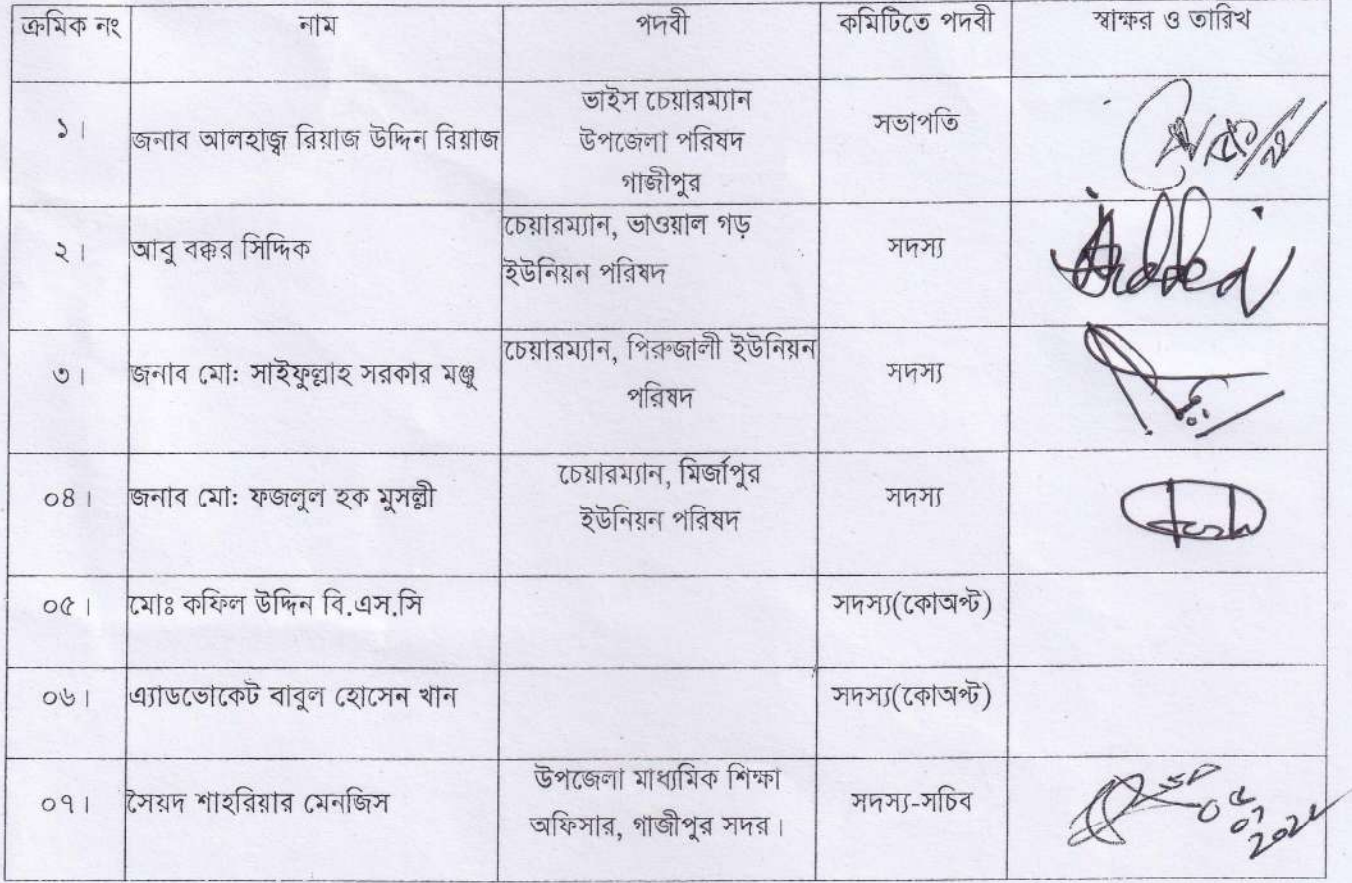 ক্রমিক নং নাম পদবী কমিটিতে পদবী স্বাক্ষর ও তারিখ
১। জনাব আলহাজ্ব রিয়াজ উদ্দিন রিয়াজ ভাইস চেয়ারম্যান সভাপতি
উপজেলা পরিষদ
গাজীপুর
২। আবু বক্কর সিদ্দিক চেয়ারম্যান, ভাওয়াল গড় সদস্য
ইউনিয়ন পরিষদ
৩। জনাব মো: সাইফুল্লাহ সরকার মঞ্জু চেয়ারম্যান, পিরুজালী ইউনিয়ন সদস্য
পরিষদ
০৪। জনাব মো: ফজলুল হক মুসল্লী চেয়ারম্যান, মির্জাপুর সদস্য
ইউনিয়ন পরিষদ
০৫। মোঃ কফিল উদ্দিন বি.এস.সি সদস্য(কোঅপ্ট)
০৬। এ্যাডভোকেট বাবুল হোসেন খান সদস্য(কোঅপ্ট)
০৭। সৈয়দ শাহরিয়ার মেনজিস উপজেলা মাধ্যমিক শিক্ষা সদস্য-সচিব
অফিসার, গাজীপুর সদর।